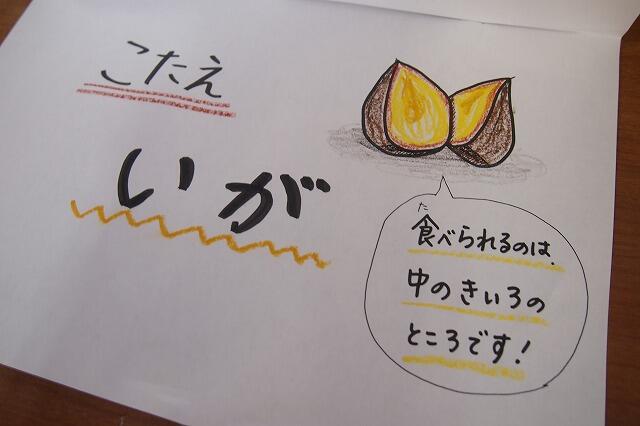 こたえ
いが
食べられるのは、
た
中のきいろの
ところです!